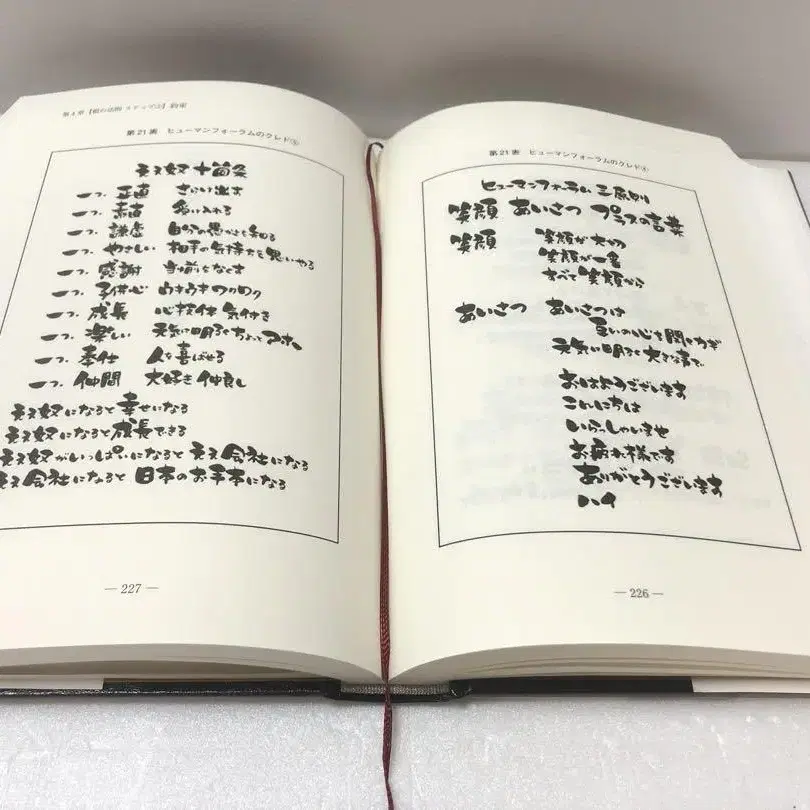 第21図 ヒューマンフォーラムのクレド④
ヒューマンフォーラム 三原則
笑顔 あいさつ プラスの言葉
笑顔 笑顔が大切
笑顔が一番
すべて笑顔から
あいさつ あいさつは
互いの心を開くカギ
元気に明るく大きな声で
おはようございます
こんにちは
いらっしゃいませ
お疲れ様です
ありがとうございます
ハイ
― 226 ―
第4章【根の法則 ステップ2】約束
第21図 ヒューマンフォーラムのクレド⑤
ええ奴 十箇条
一つ、正直 さらけ出す
一つ、素直 受け入れる
一つ、謙虚 自分の愚かさを知る
一つ、やさしい 相手の気持ちを思いやる
一つ、感謝 当り前をなくす
一つ、子供心 ウキウキワクワク
一つ、成長 心技体 気付き
一つ、楽しい 元気に明るくちょっとアホー
一つ、奉仕 人を喜ばせる
一つ、仲間 大好き 仲良し
ええ奴になると幸せになる
ええ奴になると成長できる
ええ奴がいっぱいになるとええ会社になる
ええ会社になると日本のお手本になる
― 227 ―